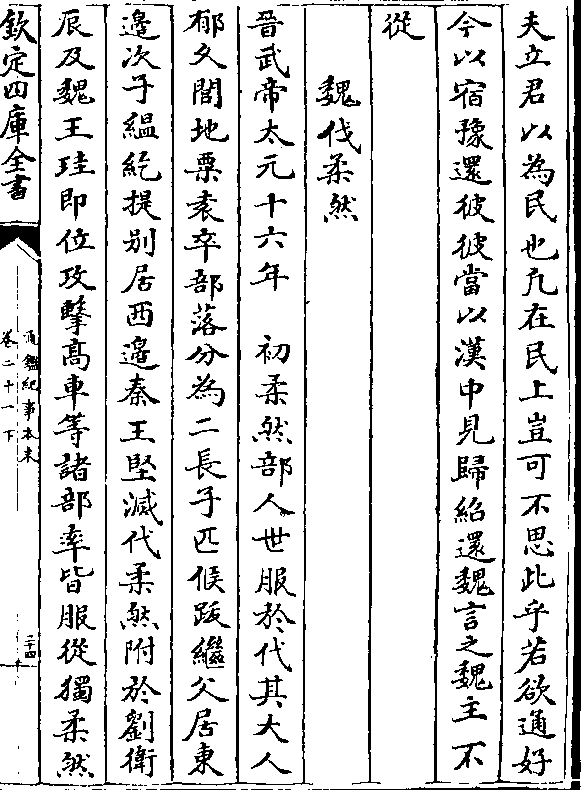 夫立君以為民也凡在民上豈可不思此乎若欲通好
今以宿豫還彼彼當以漢中見歸紹還魏言之魏主不
從
魏伐柔然
晉武帝太元十六年　初柔然部人世服於代其大人
郁久閭地粟袁卒部落分為二長子匹候跋繼父居東
邊次子緼紇提别居西邊秦王堅滅代柔然附於劉衛
辰及魏王珪即位攻擊高車等諸部率皆服從獨柔然
欽定四庫全書
通鑑紀事本末
卷二十一下
二四